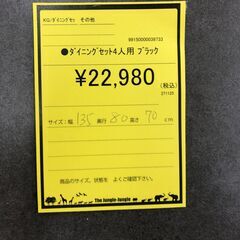 KG/ダイニングセッ その他
99150000038733
●ダイニングセット4人用 ブラック
¥22,980
(税込)
271125
サイズ:幅 135 奥行 80 高さ 70 cm
商品のサイズ、状態を よくご確認下さい。
The Jungle-Jungle